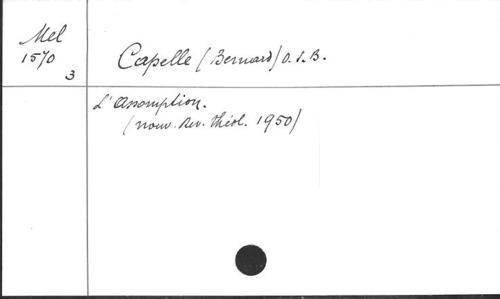 Mel
1570
3
Capelle (Bernard) O.S.B.
L'Assomption.
(nouv. Rev. théol. 1950)